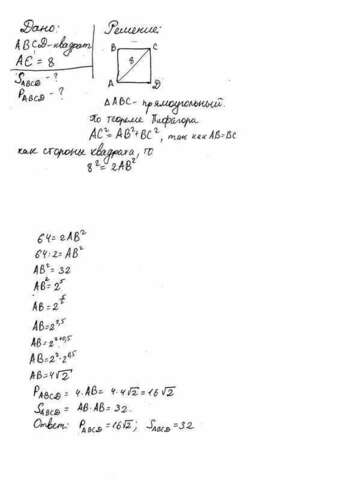 Дано:
ABCD - квадрат
AC = 8
S_ABCD - ?
P_ABCD - ?
Решение:
B C
8
A D
△ABC - прямоугольный.
По теореме Пифагора
AC² = AB² + BC², так как AB = BC
как стороны квадрата, то
8² = 2AB²
64 = 2AB²
64:2 = AB²
AB² = 32
AB² = 2⁵
AB = 2^(5/2)
AB = 2^2,5
AB = 2^(2+0,5)
AB = 2² · 2^0,5
AB = 4√2
P_ABCD = 4 · AB = 4 · 4√2 = 16√2
S_ABCD = AB · AB = 32.
Ответ: P_ABCD = 16√2; S_ABCD = 32